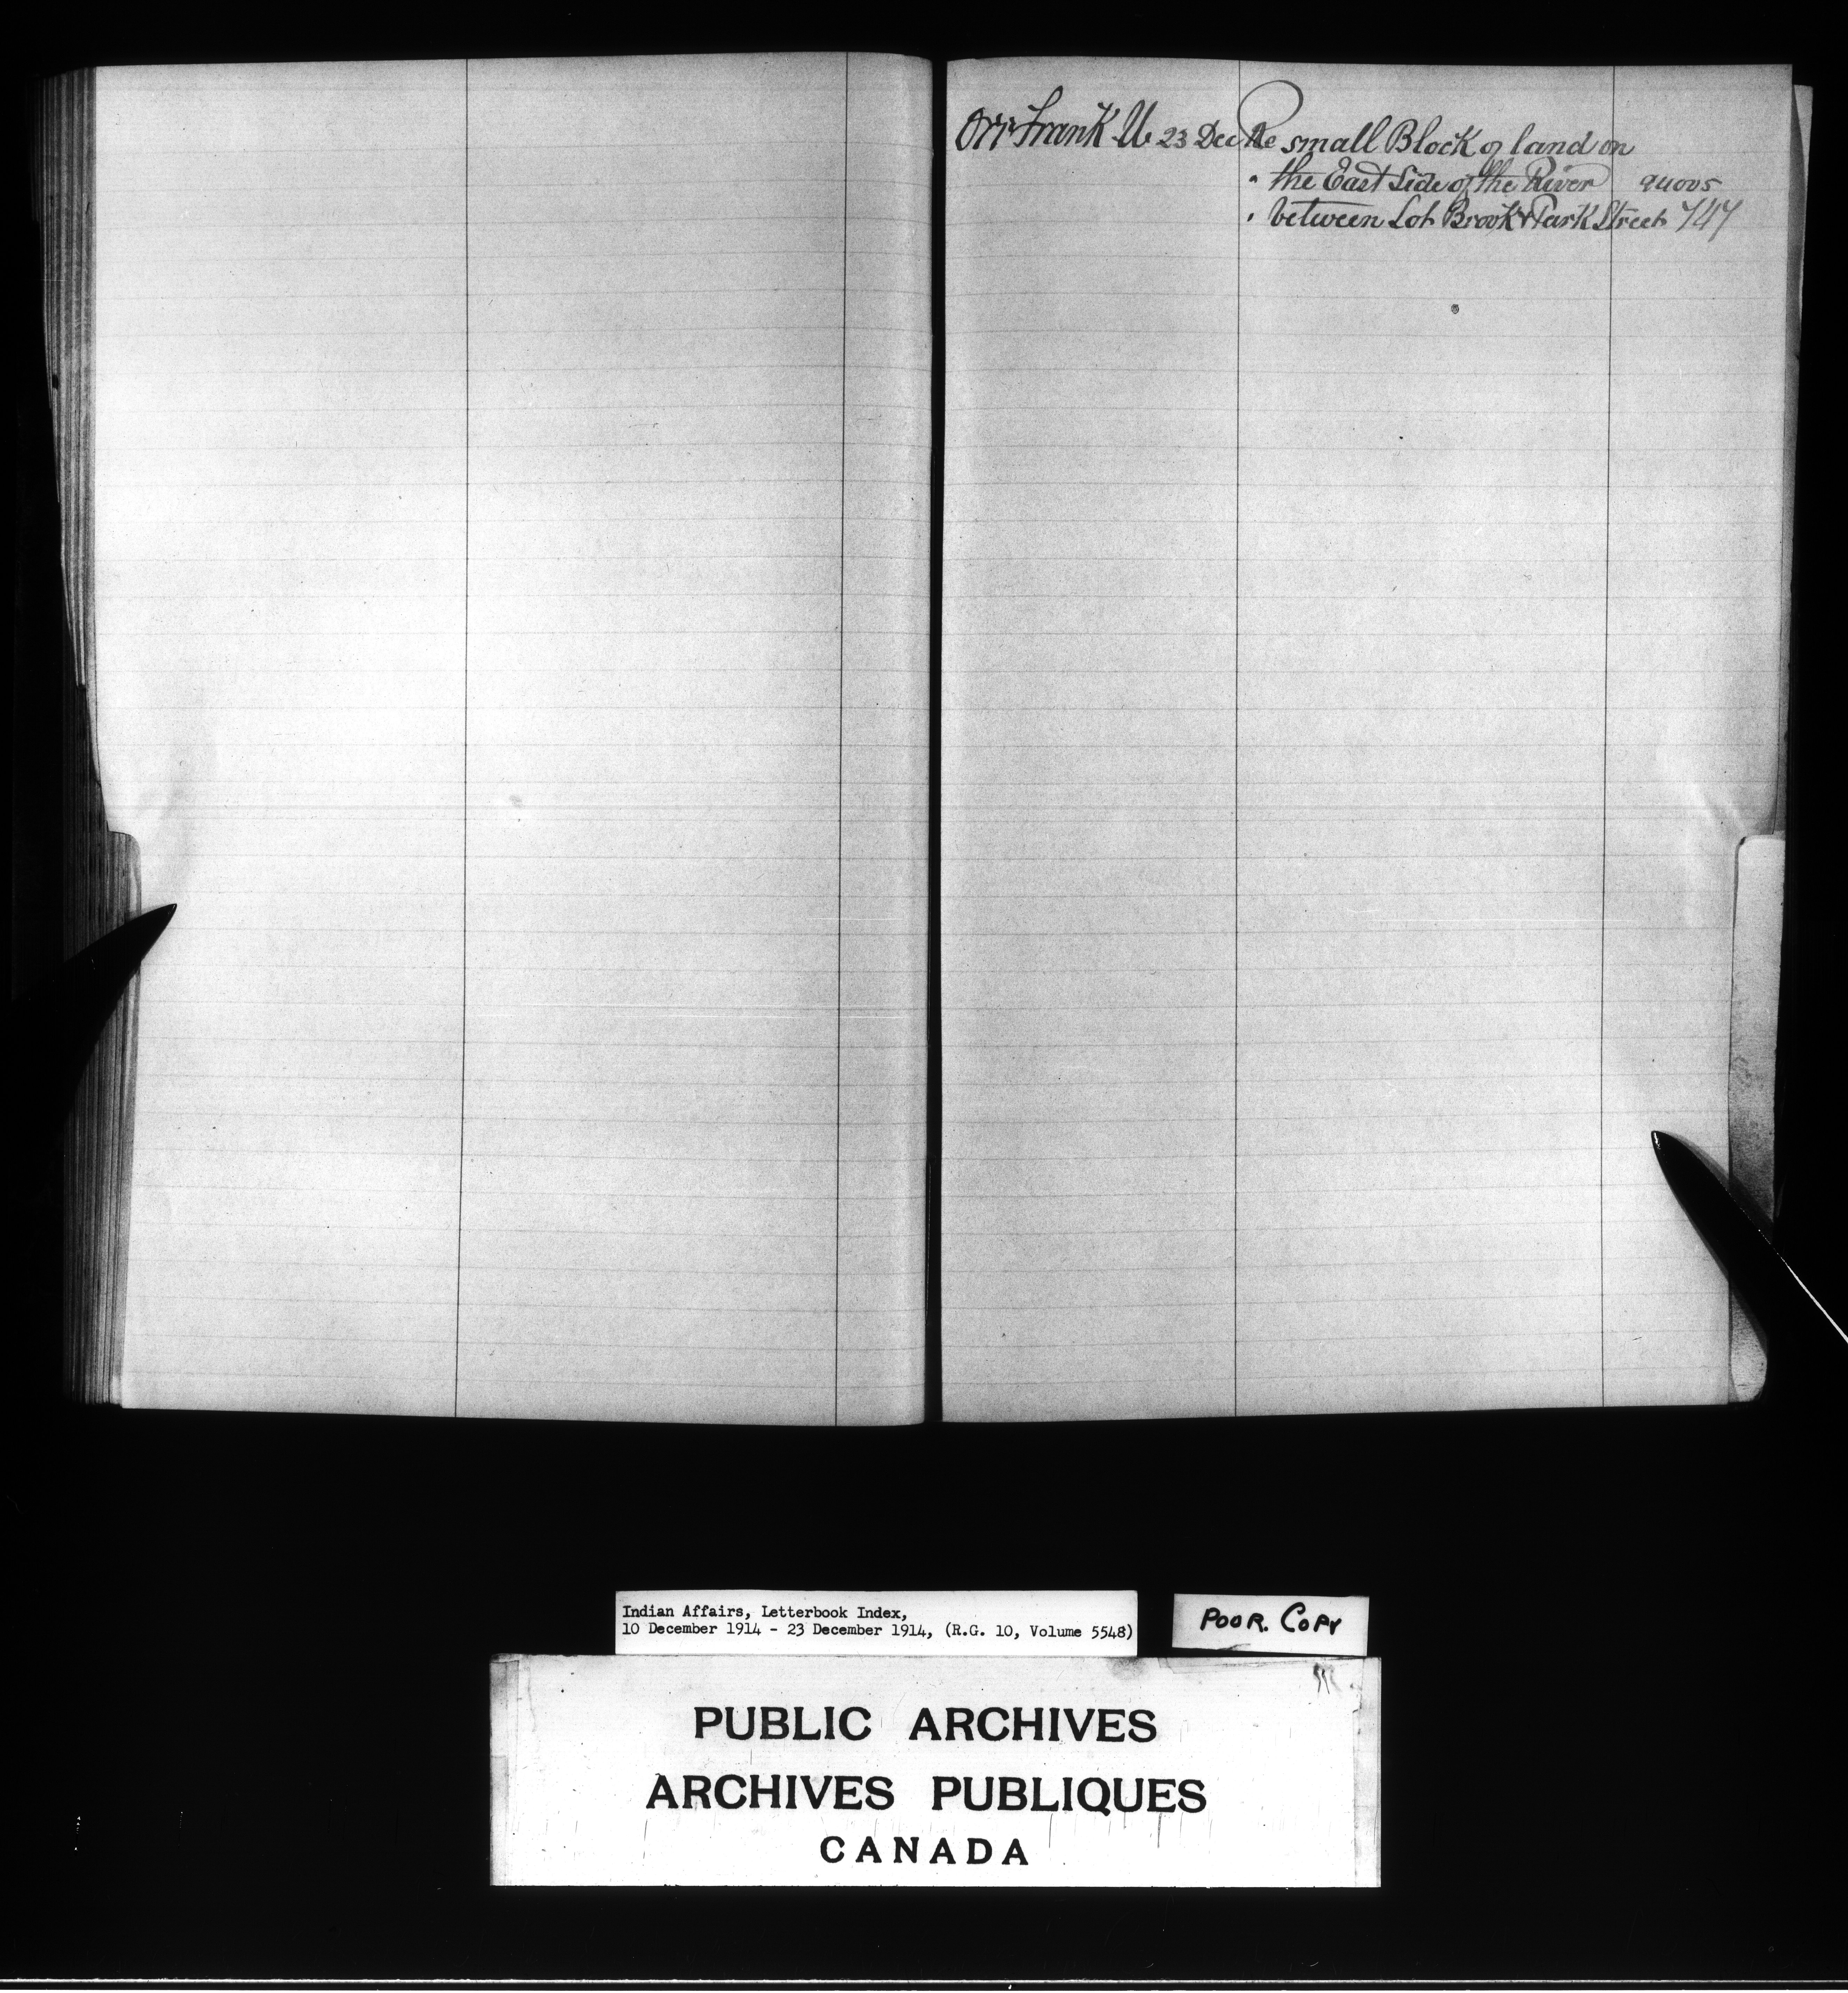 Orr Frank U. 23 Dec Re small Block of land on
" the East Side of the River 94005
" between Lot Brook & Park Street 747
Indian Affairs, Letterbook Index,
10 December 1914 - 23 December 1914, (R.G. 10, Volume 5548)
POOR. COPY
PUBLIC ARCHIVES
ARCHIVES PUBLIQUES
CANADA